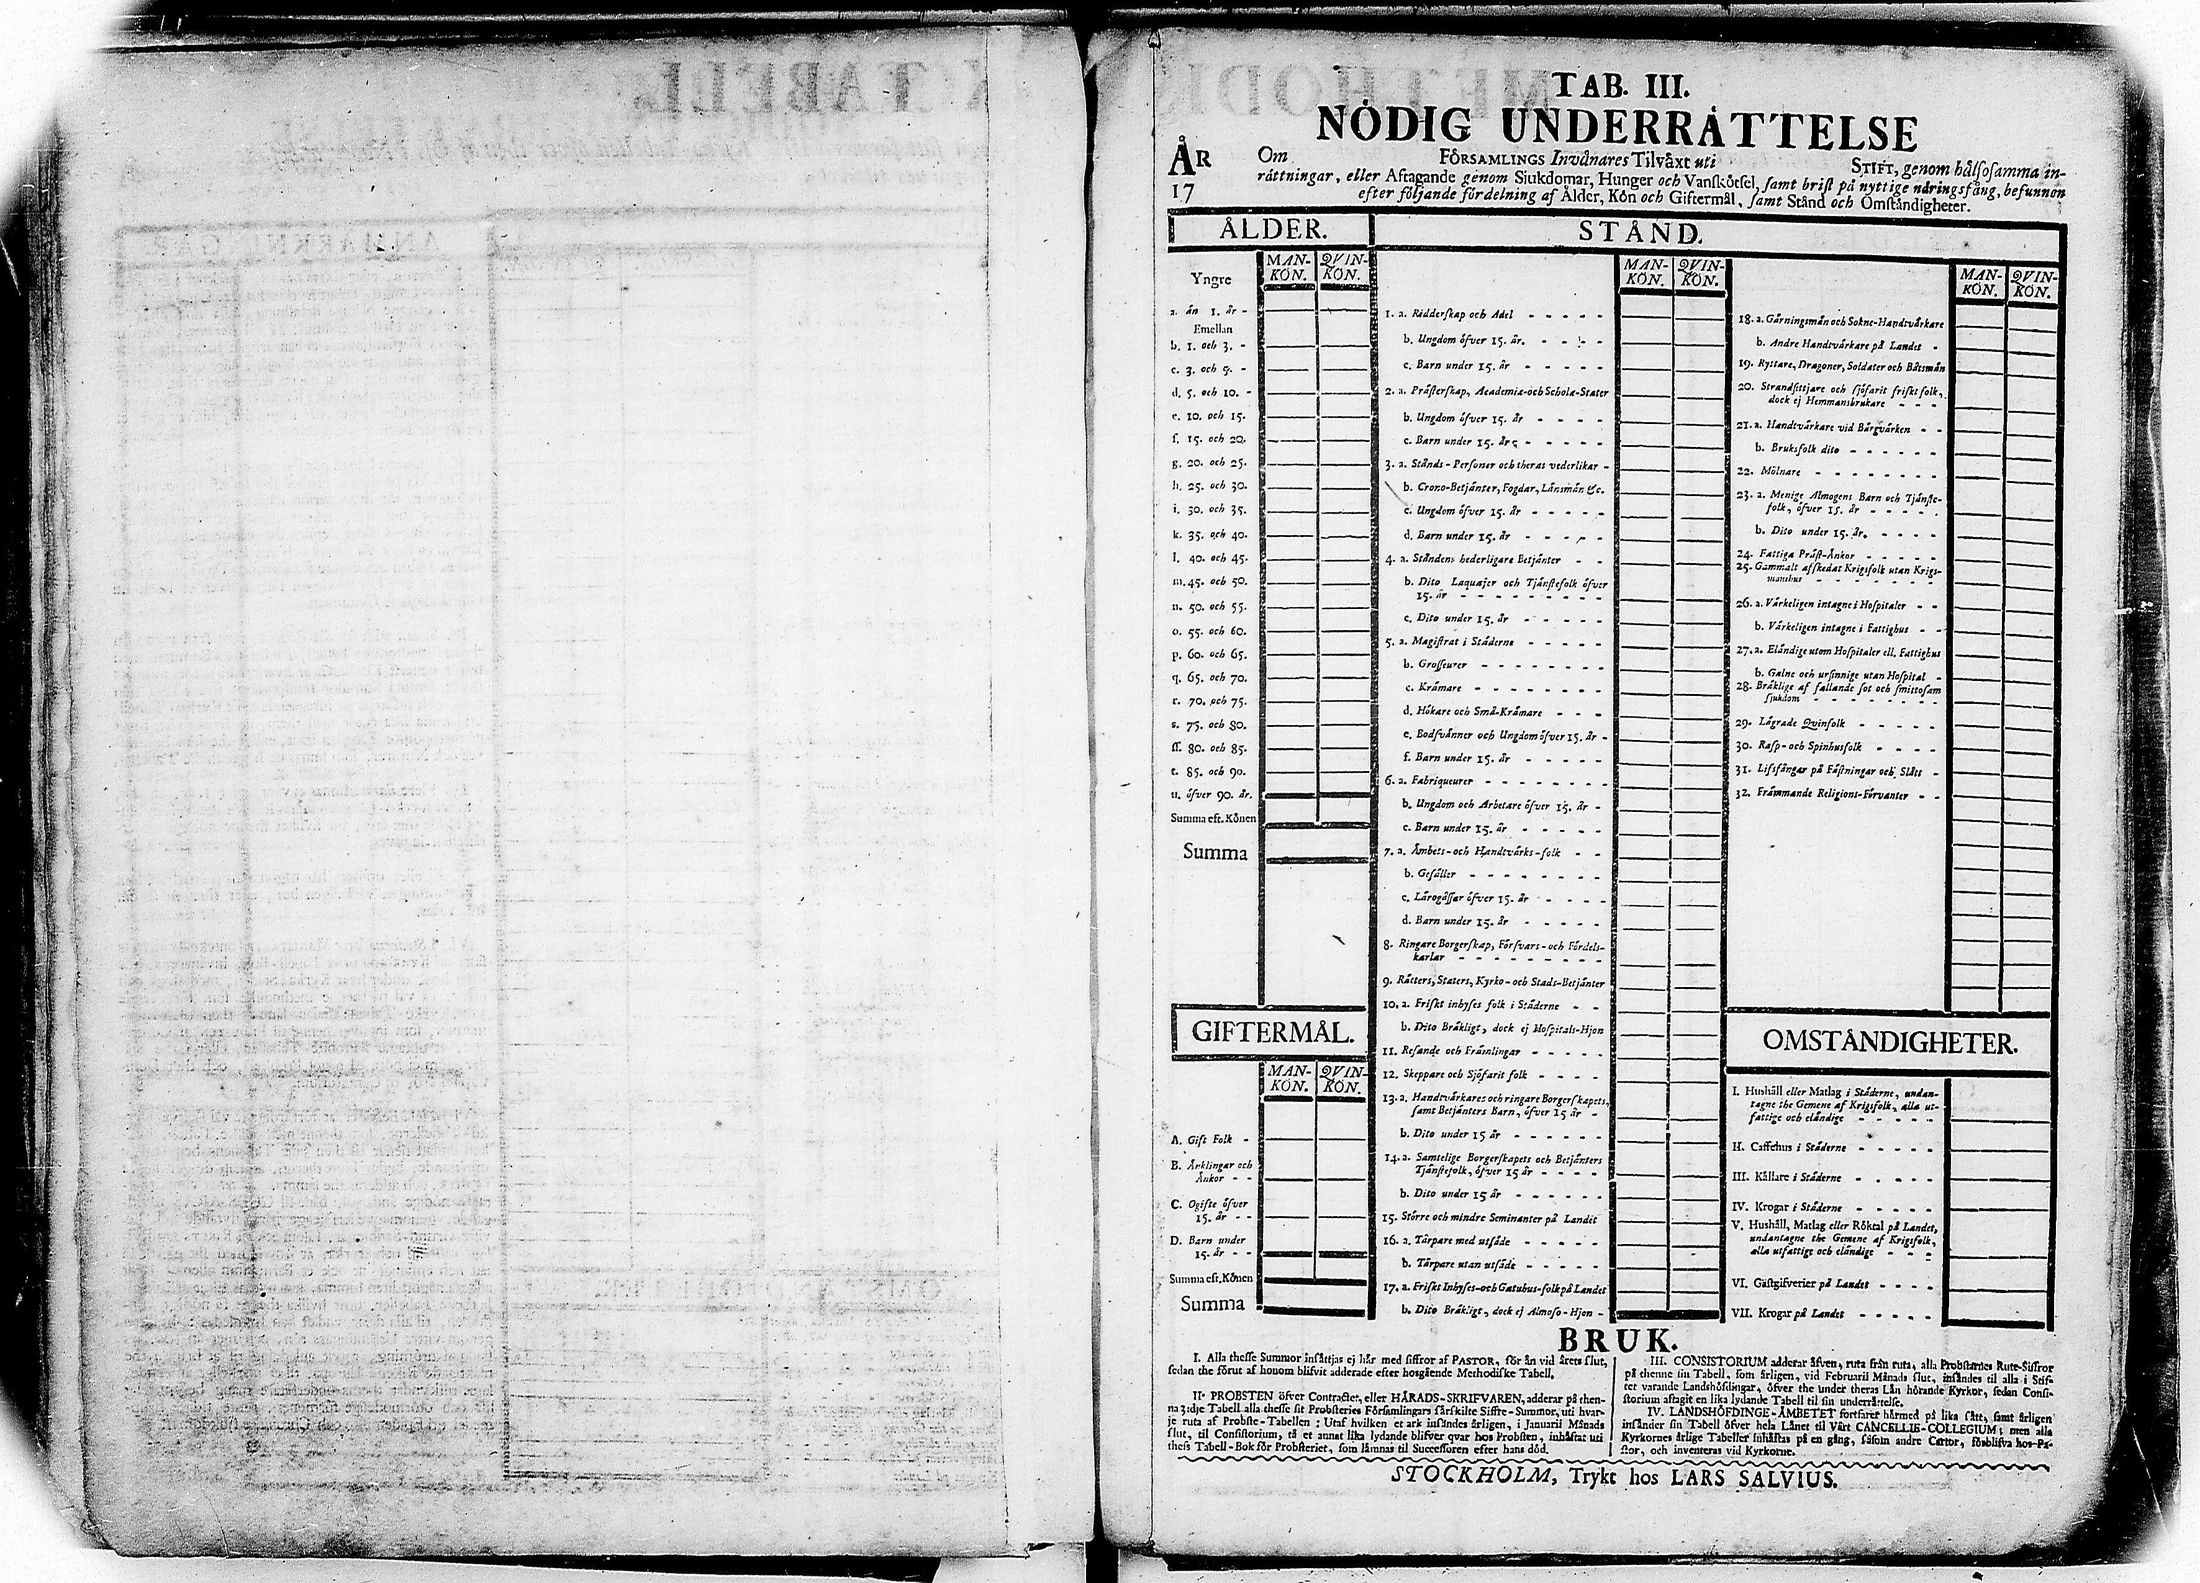 TAB. III.
NÖDIG UNDERRÄTTELSE
ÅR
17
Om FÖRSAMLINGS Invånares Tilväxt uti STIFT, genom hälsosamma in-
rättningar, eller Aftagande genom Sjukdomar, Hunger och Vanskötsel, samt brist på nyttige näringsfång, befunnen
efter följande fördelning af Ålder, Kön och Giftermål, samt Stånd och Omständigheter.
ÅLDER.
MAN-KÖN. QVIN-KÖN.
Yngre
a. än 1. år -
Emellan
b. 1. och 3. -
c. 3. och 5. -
d. 5. och 10. -
e. 10. och 15.
f. 15. och 20.
g. 20. och 25.
h. 25. och 30.
i. 30. och 35.
k. 35. och 40.
l. 40. och 45.
m. 45. och 50.
n. 50. och 55.
o. 55. och 60.
p. 60. och 65.
q. 65. och 70.
r. 70. och 75.
s. 75. och 80.
ss. 80. och 85.
t. 85. och 90.
u. öfver 90. år.
Summa eft. Könen
Summa
GIFTERMÅL.
MAN-KÖN. QVIN-KÖN.
A. Gift Folk -
B. Änklingar och
Änkor - -
C. Ogifte öfver
15. år - -
D. Barn under
15. år - -
Summa eft. Könen
Summa
STÅND.
MAN-KÖN. QVIN-KÖN.
1. a. Ridderskap och Adel - - - - -
b. Ungdom öfver 15. år. - - - -
c. Barn under 15. år - - - - -
2. a. Prästerskap, Academiæ-och Scholæ-Stater
b. Ungdom öfver 15. år - - - - -
c. Barn under 15. år - - - - -
3. a. Stånds-Personer och theras vederlikar -
b. Crono-Betjänter, Fogdar, Länsmän &c.
c. Ungdom öfver 15. år - - - - -
d. Barn under 15. år - - - - -
4. a. Ståndens hederligare Betjänter - -
b. Dito Laquajer och Tjänstefolk öfver
15. år - - - - - - - - -
c. Dito under 15. år - - - - -
5. a. Magistrat i Städerne - - - - -
b. Grosseurer - - - - - - -
c. Krämare - - - - - - - -
d. Hökare och Små-Krämare - - -
e. Bodsvänner och Ungdom öfver 15. år -
f. Barn under 15. år - - - - -
6. a. Fabriqueurer - - - - - - -
b. Ungdom och Arbetare öfver 15. år -
c. Barn under 15. år - - - - -
7. a. Ämbets-och Handtvärks-folk - -
b. Gesäller - - - - - - - -
c. Lärogåssar öfver 15. år - - - -
d. Barn under 15. år - - - - -
8. Ringare Borgerskap, Försvars-och Fördels-
karlar - - - - - - - - -
9. Rätters, Staters, Kyrko-och Stads-Betjänter
10. a. Friskt inhyses folk i Städerne - -
b. Dito Bräkligt, dock ej Hospitals-Hjon
11. Resande och Främlingar - - - - -
12. Skeppare och Sjöfarit folk - - - -
13. a. Handtvärkares och ringare Borgerskapets,
samt Betjänters Barn, öfver 15 år -
b. Dito under 15 år - - - - - -
14. a. Samtelige Borgerskapets och Betjänters
Tjänstefolk, öfver 15 år - - - -
b. Dito under 15 år - - - - - -
15. Större och mindre Seminanter på Landet
16. a. Tårpare med utsäde - - - - -
b. Tårpare utan utsäde - - - - -
17. a. Friskt Inhyses-och Gatuhus-folk på Landet
b. Dito Bräkligt, dock ej Almoso-Hjon -
MAN-KÖN. QVIN-KÖN.
18. a. Gärningsmän och Sokne-Handtvärkare
b. Andre Handtvärkare på Landet -
19. Ryttare, Dragoner, Soldater och Båtsmän
20. Strandsittjare och sjöfarit friskt folk,
dock ej Hemmansbrukare - - -
21. a. Handtvärkare vid Bärgvärken - -
b. Bruksfolk dito - - - - - -
22. Mölnare - - - - - - -
23. a. Menige Almogens Barn och Tjänste-
folk, öfver 15. år - - - - -
b. Dito under 15. år. - - - -
24. Fattiga Präst-Änkor - - - - -
25. Gammalt afskedat Krigsfolk utan Krigs-
manshus - - - - - - -
26. a. Värkeligen intagne i Hospitaler - -
b. Värkeligen intagne i Fattighus - -
27. a. Eländige utom Hospitaler ell. Fattighus
b. Galne och ursinnige utan Hospital -
28. Bräklige af fallande sot och smittosam
sjukdom - - - - - - -
29. Lägrade Qvinfolk - - - - -
30. Rasp-och Spinhusfolk - - - -
31. Lifsfångar på Fästningar och Slått -
32. Främmande Religions-Förvanter - -
OMSTÄNDIGHETER.
I. Hushåll eller Matlag i Städerne, undan-
tagne the Gemene af Krigsfolk, alla ut-
fattige och eländige - - - - -
II. Caffehus i Städerne - - - - -
III. Källare i Städerne - - - - -
IV. Krogar i Städerne - - - - -
V. Hushåll, Matlag eller Röktal på Landet,
undantagne the Gemene af Krigsfolk,
alla utfattige och eländige - - -
VI. Gästgifverier på Landet - - - -
VII. Krogar på Landet - - - - -
BRUK.
I. Alla thesse Summor insättjas ej här med siffror af PASTOR, för än vid årets slut,
sedan the förut af honom blifvit adderade efter hosgående Methodiske Tabell.
II. PROBSTEN öfver Contractet, eller HÄRADS-SKRIFVAREN, adderar på then-
na 3:dje Tabell alla thesse sit Probsteries Församlingars särskilte Siffre-Summor, uti hvar-
je ruta af Probste-Tabellen; Utaf hvilken et ark insändes årligen, i Januarii Månads
slut, til Consistorium, tå et annat lika lydande blifver qvar hos Probsten, inhäftat uti
thess Tabell-Bok för Probsteriet, som lämnas til Successoren efter hans död.
III. CONSISTORIUM adderar äfven, ruta från ruta, alla Probstarnes Rute-Siffror
på thenne sin Tabell, som årligen, vid Februarii Månads slut, insändes til alla i Stif-
tet varande Landshöfdingar, öfver the under theras Län hörande Kyrkor, sedan Consi-
storium aftagit en lika lydande Tabell til sin underrättelse.
IV. LANDSHÖFDINGE-ÄMBETET fortfarer härmed på lika sätt, samt årligen
insänder sin Tabell öfver hela Länet til Vårt CANCELLIE-COLLEGIUM; men alla
Kyrkornes årlige Tabeller inhäftas på en gång, såsom andre Cartor, förblifva hos Pa-
stor, och inventeras vid Kyrkorne.
STOCKHOLM, Tryckt hos LARS SALVIUS.